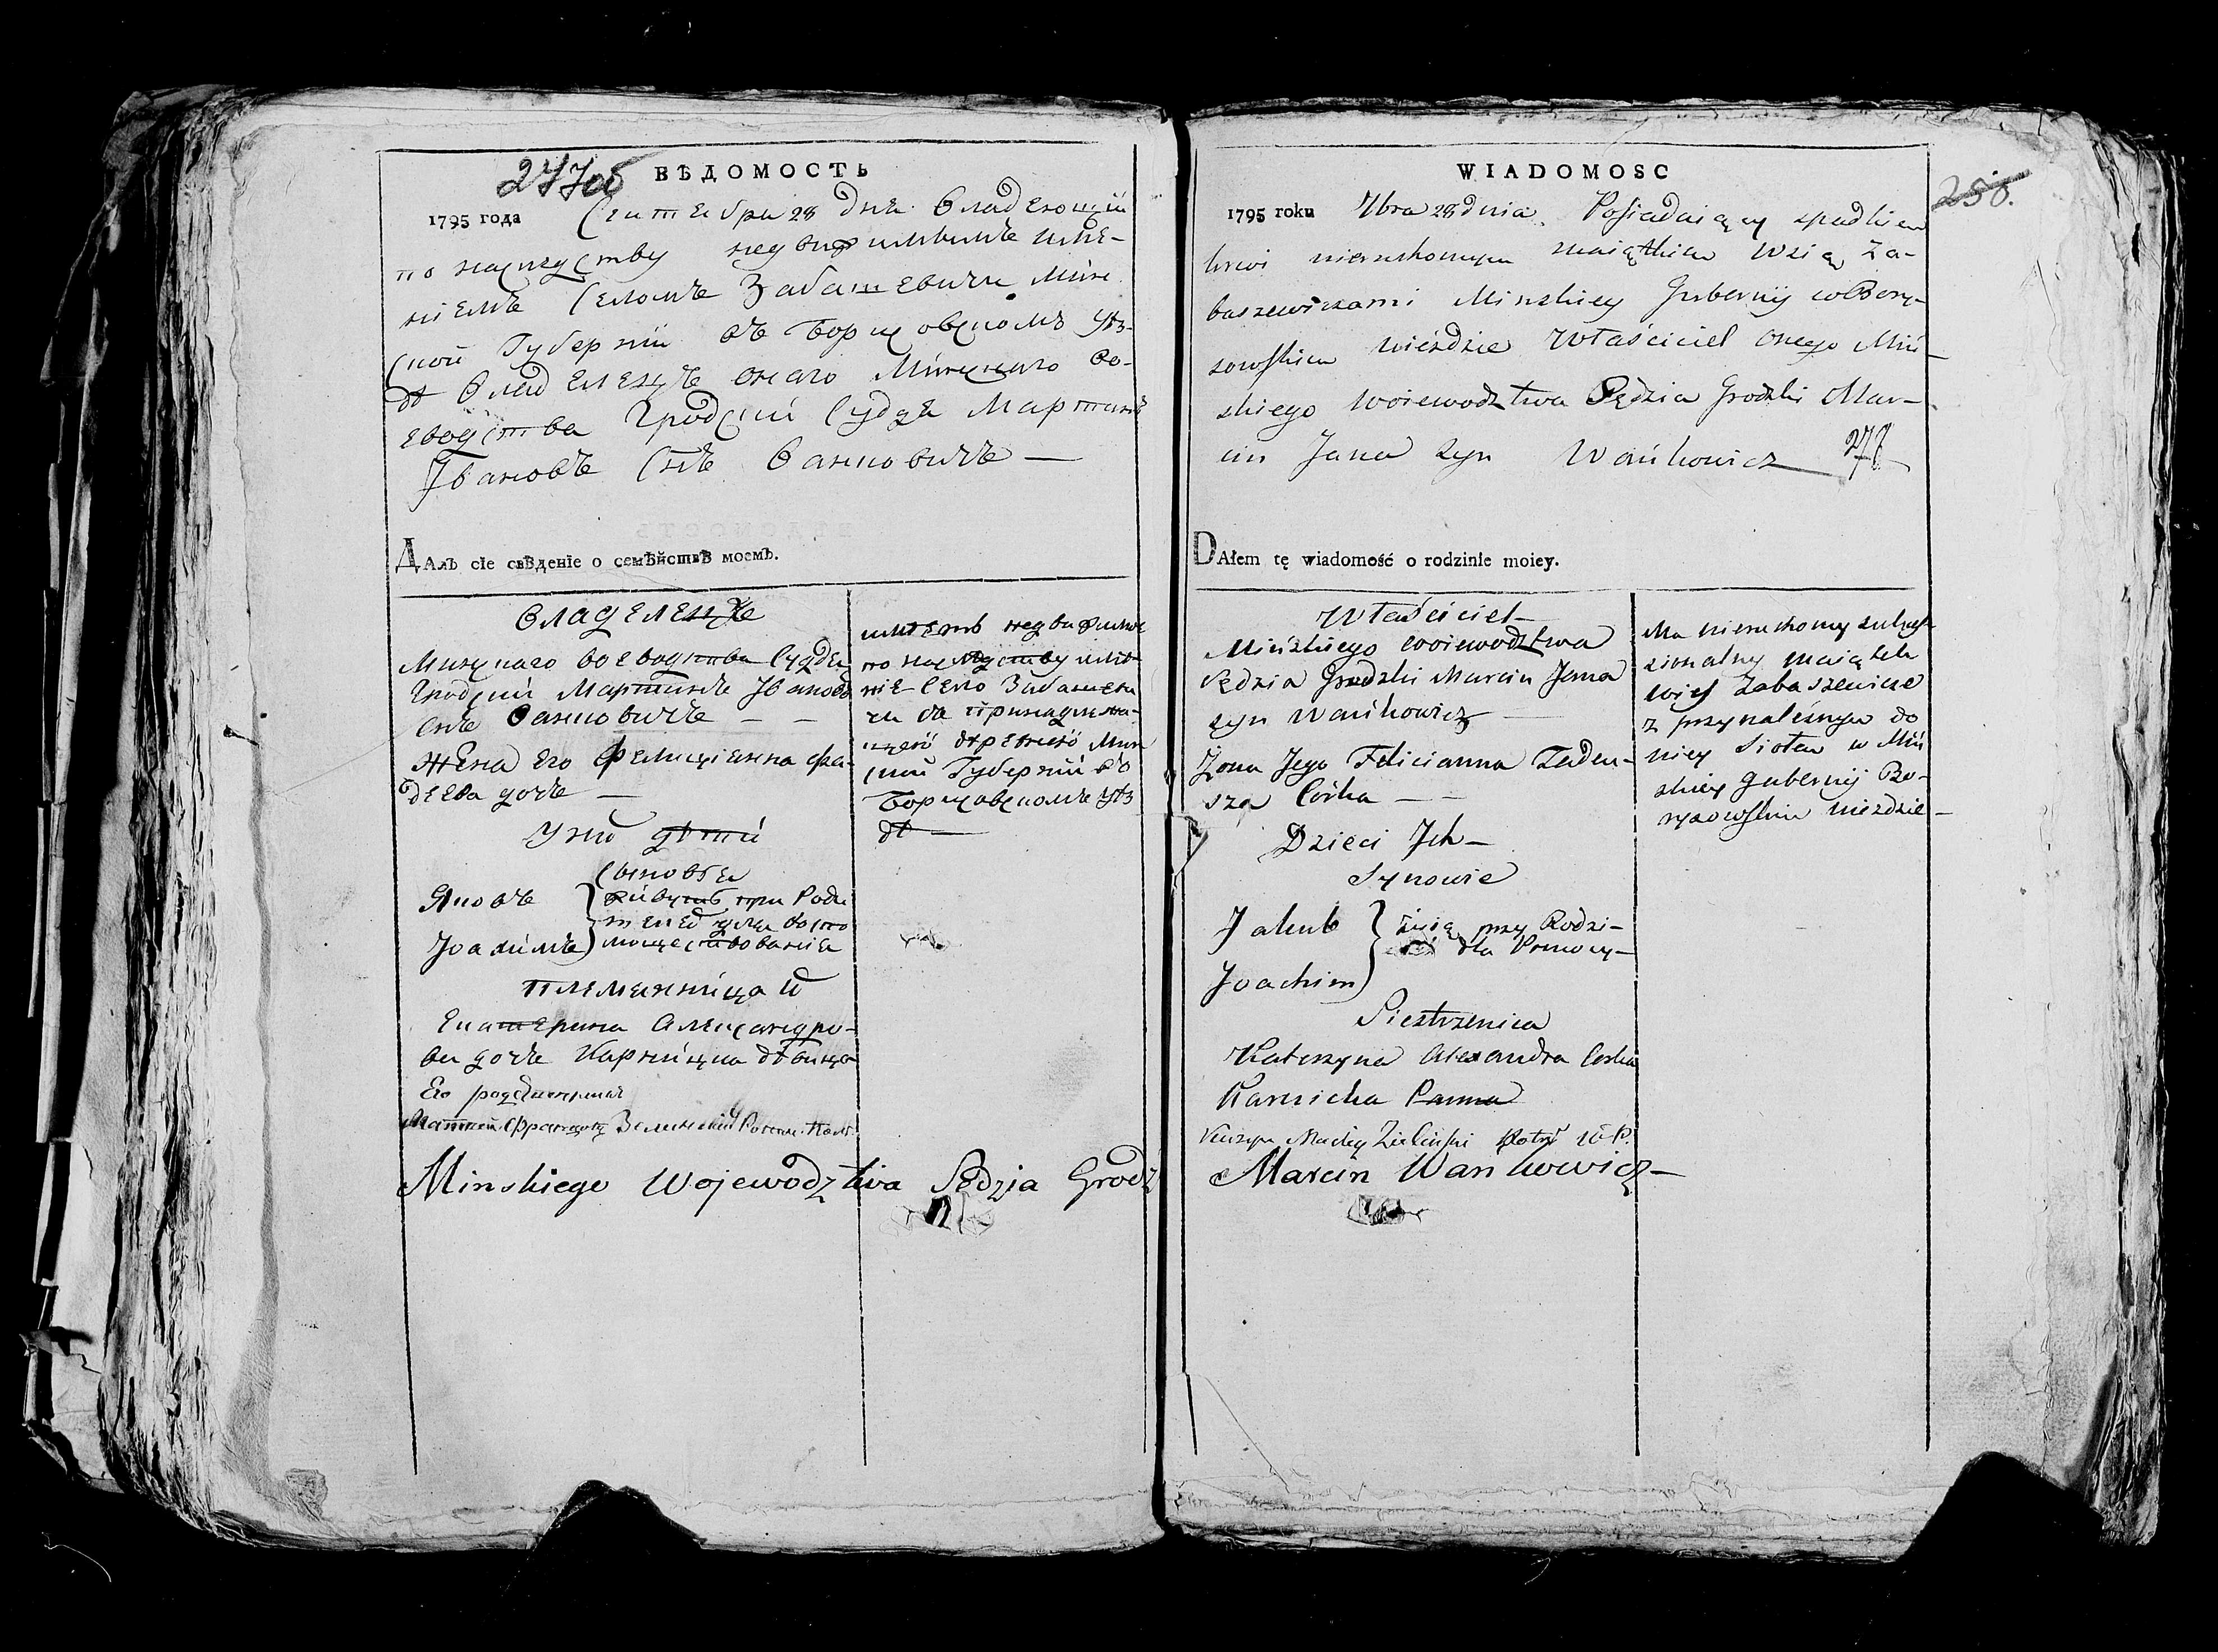 277об
ВѢДОМОСТЬ
1795 года Сентебря 28 дня Владеющий
по наследству недвижимымъ имѣ-
нiемъ селомъ Забашевичи Мин
ской Губернiи въ Борисовскомъ уѣз-
дѣ Владелецъ онаго Минского во-
еводства Гродскiй Судья Мартинъ
Ивановъ снъ Ваньковичъ —
ДАлъ сiе свѣденiе о семѣйствѣ моемъ.
Владелецъ
Минского воеводства Судья
Гродскiй Мартинъ Ивановъ
снъ Ваньковичъ — —
Жена его Фелицiанна Фа-
деева дочь —
У них дѣти
Сыновья
Яковъ
Живутъ при Роди
телех для воспо
Иоахимъ
моществованiя
Племянница их
Екатерина Александро-
ва дочь Карницка дѣвица
имѣетъ недвижимое
по наследству имѣ-
нiе село Забашеви
чи да принадлежа-
щей деревней Мин
ской Губернiи въ
Борисовскомъ уѣз
дѣ —
Minskiego Wojewodztwa Sędzia Grodz
WIADOMOSC
258.
1795 roku 7bra 28 dnia. Posiadaiący spadkiem
krwi nieruchomym maiątkiem Wsią Za-
baszewiczami Minskiey Gubernij w Bory-
sowskim Uieździe Właściciel onego Miń-
skiego Woiewodztwa Sędzia Grodzki Mar-
cin Jana syn Wańkowicz —
278
DAłem tę wiadomość o rodzinie moiey.
Właściciel —
Mińskiego Woiewodztwa
Sędzia Grodzki Marcin Jana
syn Wańkowicz —
Żona Jego Felicianna Tadeu-
sza Córka — —
Dzieci Ich —
Synowie
Jakub
żyią przy Rodzi-
dla Pomocy —
Joachim
Siestrzenica
Katerzyna Alexandra Corka
Karnicka Panna
Maciey Zieliński
Marcin Wańkowicz —
Ma nieruchomy sukces-
sionalny maiątek
wieś Zabaszewicze
z przynależnym do
niey Siołem w Miń
skiey Gubernij Bo-
rysowskim Uieździe —